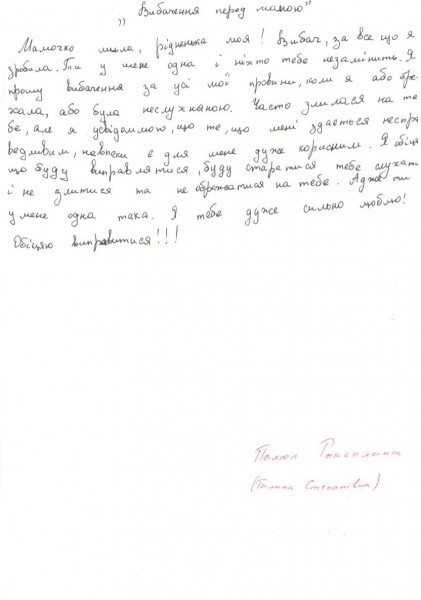 „Вибачення перед мамою"
Мамочко мила, рідненька моя! Вибач, за все що я
зробила. Ти у мене одна і ніхто тебе незамінить. Я
прошу вибачення за усі мої провини, коли я або бре-
хала, або була неслухняною. Часто злилася на те-
бе, але я усвідомлюю, що те, що мені здається неспра
ведливим, навпаки є для мене дуже корисним. Я обіця
що буду виправлятися, буду старатися тебе слухать
і не злитися та не ображатися на тебе. Адже ти
у мене одна така. Я тебе дуже сильно люблю!
Обіцяю виправитися!!!
Роксолана
(Галина Степанівна)